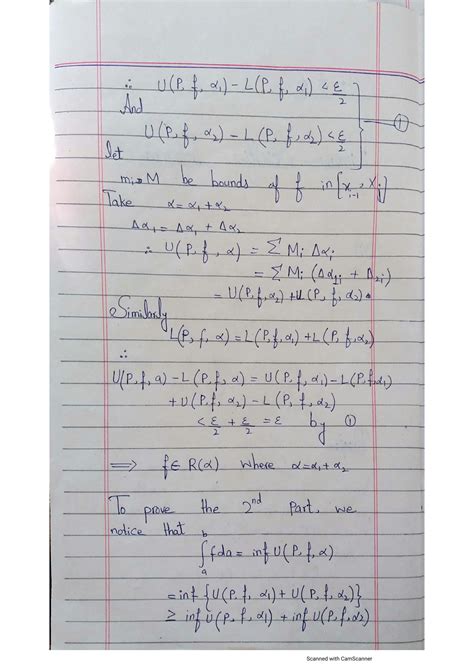 ∴ U(P, f, α₁) - L(P, f, α₁) < ε/2
And
U(P, f, α₂) - L(P, f, α₂) < ε/2 } ①
let
mᵢ, M be bounds of f in [xᵢ₋₁, xᵢ]
Take α = α₁ + α₂
Δα₁ = Δα₁ + Δα₂
∴ U(P, f, α) = Σ Mᵢ Δαᵢ
= Σ Mᵢ (Δα₁ᵢ + Δ₂ᵢ)
= U(P, f, α₂) + U(P, f, α₂).
Similarly
L(P, f, α) = L(P, f, α₁) + L(P, f, α₂)
∴
U(P, f, a) - L(P, f, α) = U(P, f, α₁) - L(P, f, α₁)
+ U(P, f, α₂) - L(P, f, α₂)
< ε/2 + ε/2 = ε by ①
⟹ f ∈ R(α) where α = α₁ + α₂
To prove the 2nd Part, we
notice that
∫ₐᵇ f dα = inf U(P, f, α)
= inf {U(P, f, α₁) + U(P, f, α₂)}
≥ inf U(P, f, α₁) + inf U(P, f, α₂)
Scanned with CamScanner